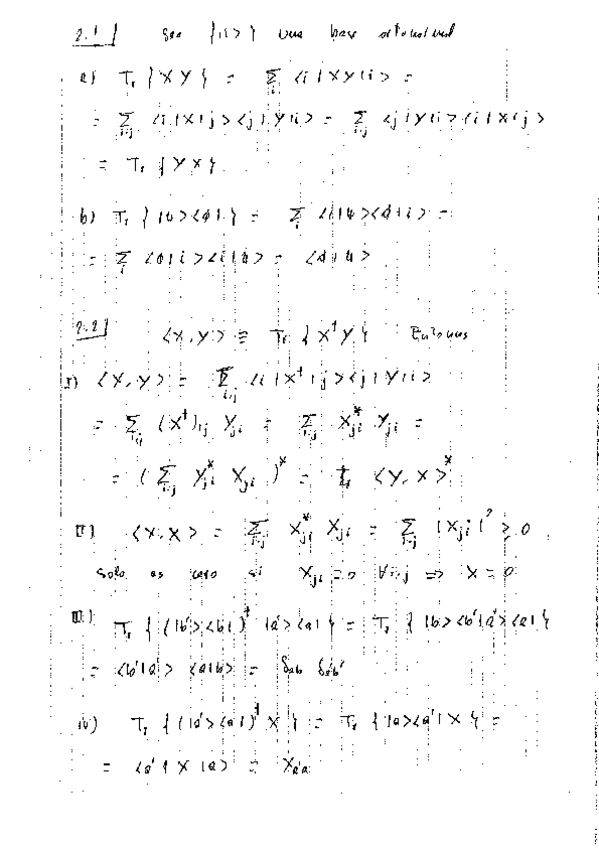 2.1 Sea {|i>} una base ortonormal
a) Tr {XY} = Σ_i <i|XY|i> =
= Σ_{i,j} <i|X|j><j|Y|i> = Σ_{i,j} <j|Y|i><i|X|j>
= Tr {YX}
b) Tr {|ψ><φ|} = Σ_i <i|ψ><φ|i> =
= Σ_i <φ|i><i|ψ> = <φ|ψ>
2.2 <X,Y> ≡ Tr {X†Y} Entonces
I) <X,Y> = Σ_{i,j} <i|X†|j><j|Y|i>
= Σ_{i,j} (X†)_{ij} Y_{ji} = Σ_{i,j} X*_{ji} Y_{ji} =
= (Σ_{i,j} Y*_{ji} X_{ji})* = <Y,X>*
II) <X,X> = Σ_{i,j} X*_{ji} X_{ji} = Σ_{i,j} |X_{ji}|² ≥ 0
solo es cero si X_{ji} = 0 ∀i,j ⇒ X = 0
III) Tr {(|b'><b|)† |a'><a|} = Tr {|b><b'|a'><a|}
= <b'|a'> <a|b> = δ_{ab} δ_{a'b'}
IV) Tr {(|a'><a|)† X} = Tr {|a><a'|X} =
= <a'|X|a> = X_{a'a}